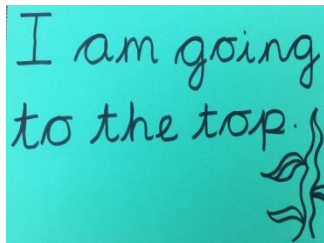 I am going
to the top.